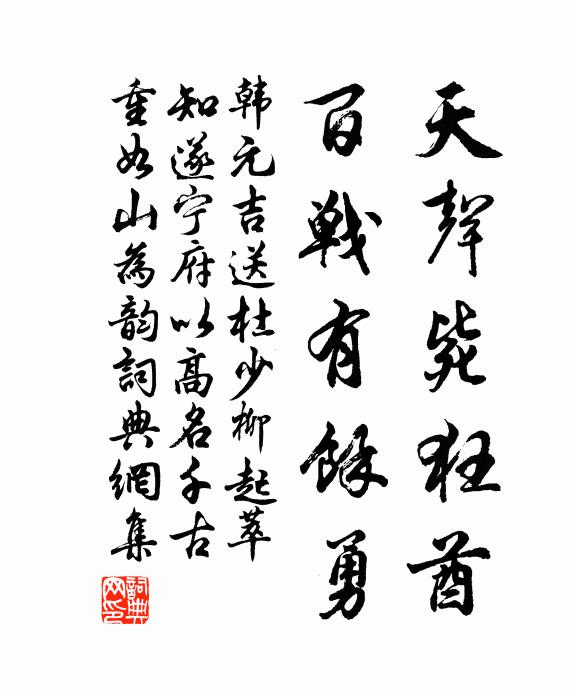 天聲毙狂酋
百戰有餘勇
韩元吉送杜少卿起萃
知遂宁府以高名千古
重如山為韵詞典網集
詞典网印